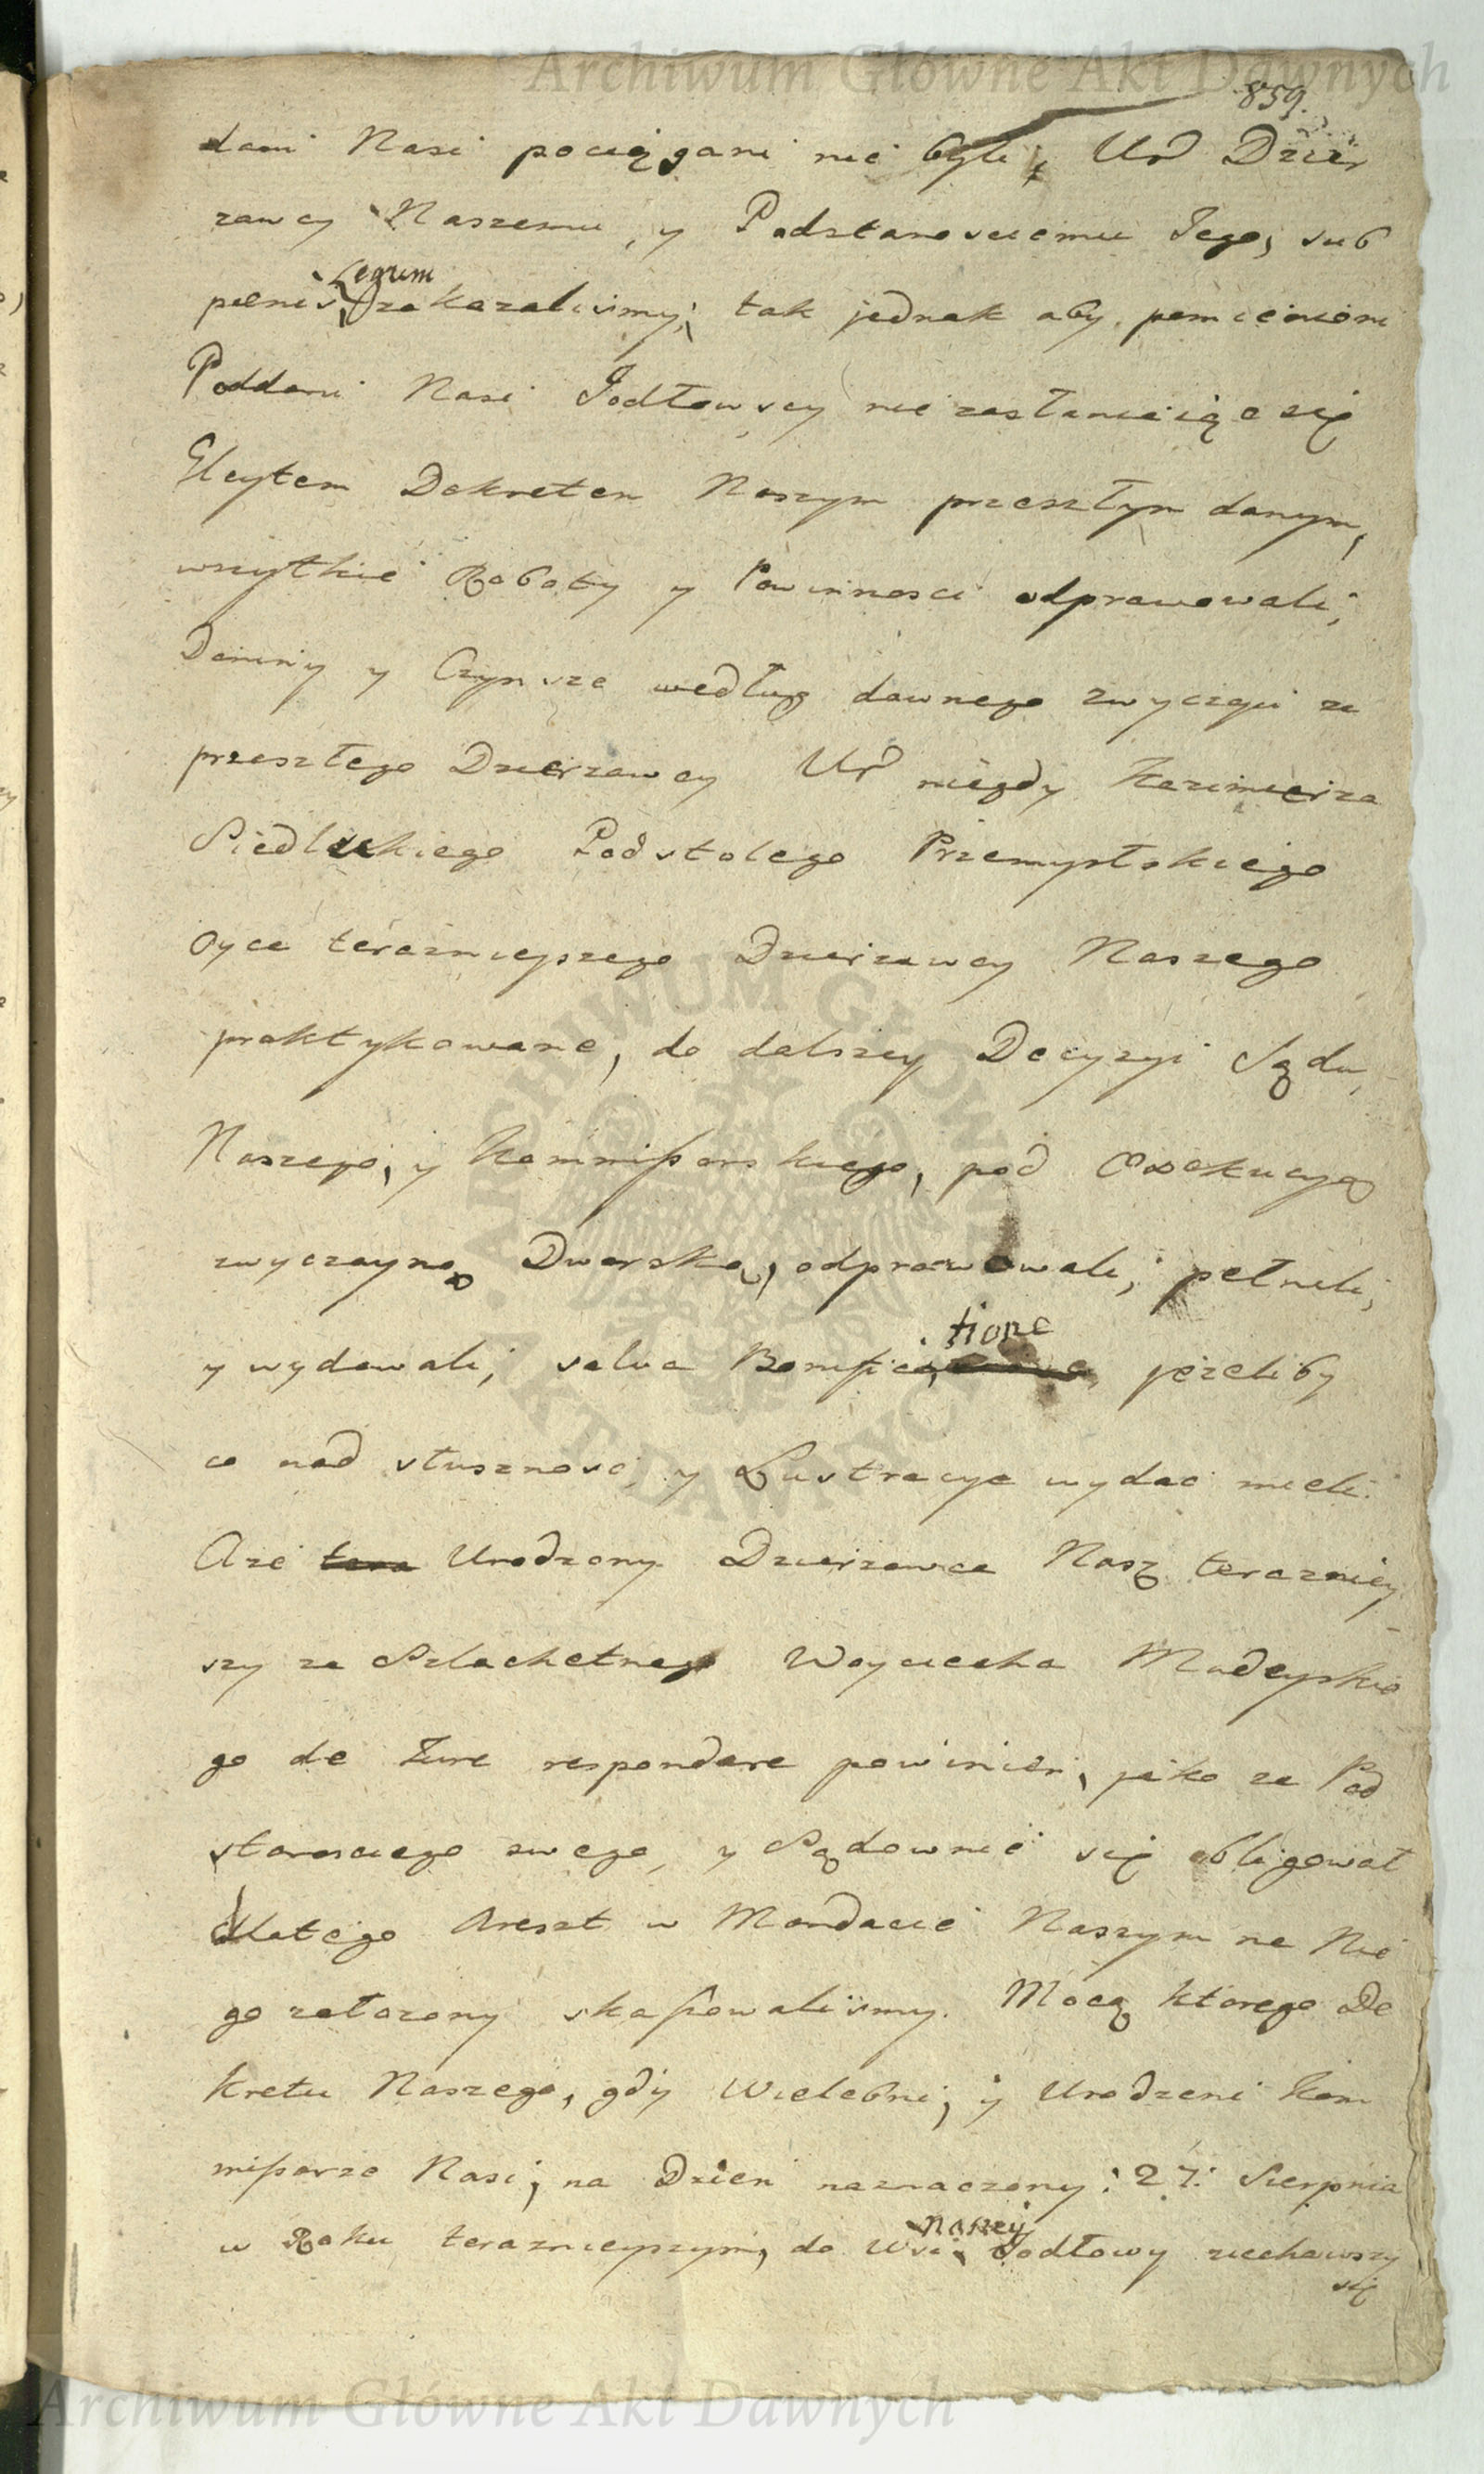 Archiwum Główne Akt Dawnych
859.
dani Nasi pociągani nie byli, Ur Dzier
zawcy Naszemu, y Podstarosciemu Jego, sub
Legum
pœnis zakazalismy; tak jednak aby pomienieni
Poddani Nasi Jodłowscy nie zasłaniaiąc się
Gleytem Dekretem Naszym przeszłym danym,
wszytkie Roboty y Powinnosci odprawowali,
Daniny y Czynsze według dawnego zwyczaju za
przeszłego Dzierzawcy Ur niegdy Kazimierza
Siedliskiego Podstolego Przemyslskiego
Oyca teraznieyszego Dzierzawcy Naszego
praktykowane, do dalszey Decyzyi Sądu
Naszego, y Kommissarskiego, pod Exekucyą
zwyczayną Dworską, odprawowali, pełnili,
tione
y wydawali, salva Bonifica, jezeliby
co nad słusznosc, y Lustracye wydac mieli.
Aze tera Urodzony Dzierzawca Nasz terazniey
szy za Szlachetnego Woyciecha Madeyskie
go de Jure respondere powinien, jako za Pod
starosciego swego, y Sądownie się obligował
dlatego Areszt w Mandacie Naszym na Nie
go załozony skassowalismy. Mocą ktorego De
kretu Naszego, gdy Wielebni, y Urodzeni Kom
missarze Nasi, na Dzien naznaczony 27. Sierpnia
naszey
w Roku teraznieyszym, do Wsi Jodłowy ziechawszy
się
ARCHIWUM GŁÓWNE AKT DAWNYCH
Archiwum Główne Akt Dawnych